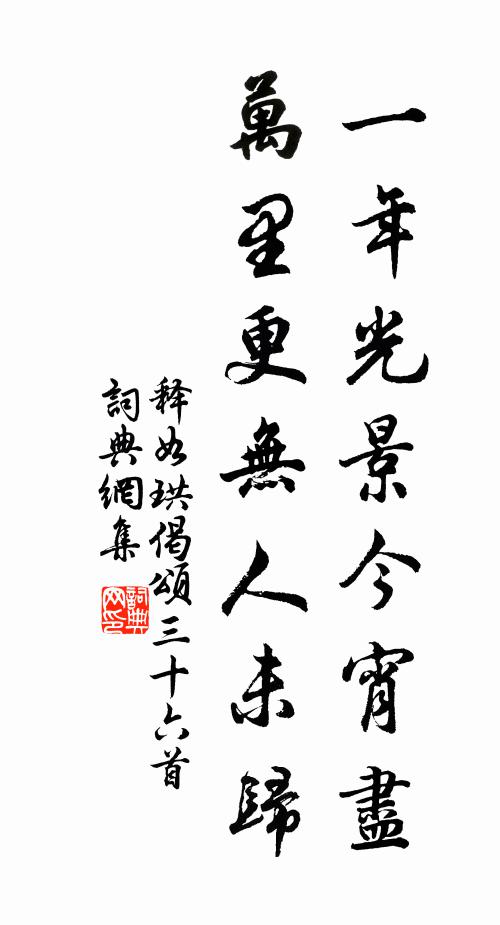 一年光景今宵盡
萬里更無人未歸
释如珙偈頌三十六首
詞典網集
詞典网印